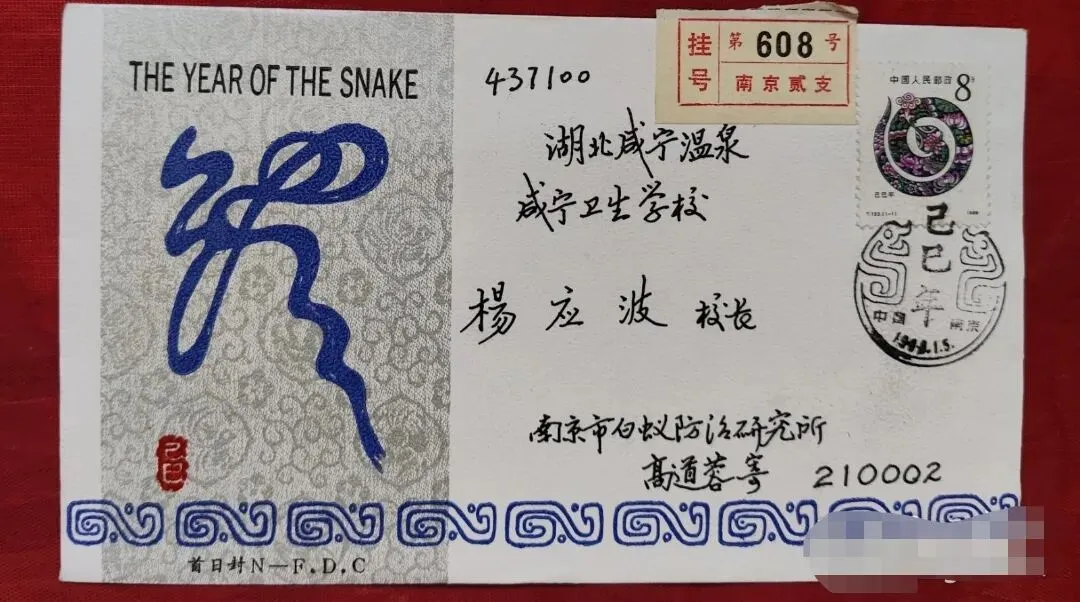 THE YEAR OF THE SNAKE
437100
挂号
第 608 号
南京贰支
中国人民邮政 8分
己巳年
T.133.(1-1) 1989
湖北咸宁温泉
咸宁卫生学校
杨应波 校长
己巳年
中国 南京
1989.1.5.
南京市白蚁防治研究所
高道蓉寄 210002
己巳
首日封N—F.D.C